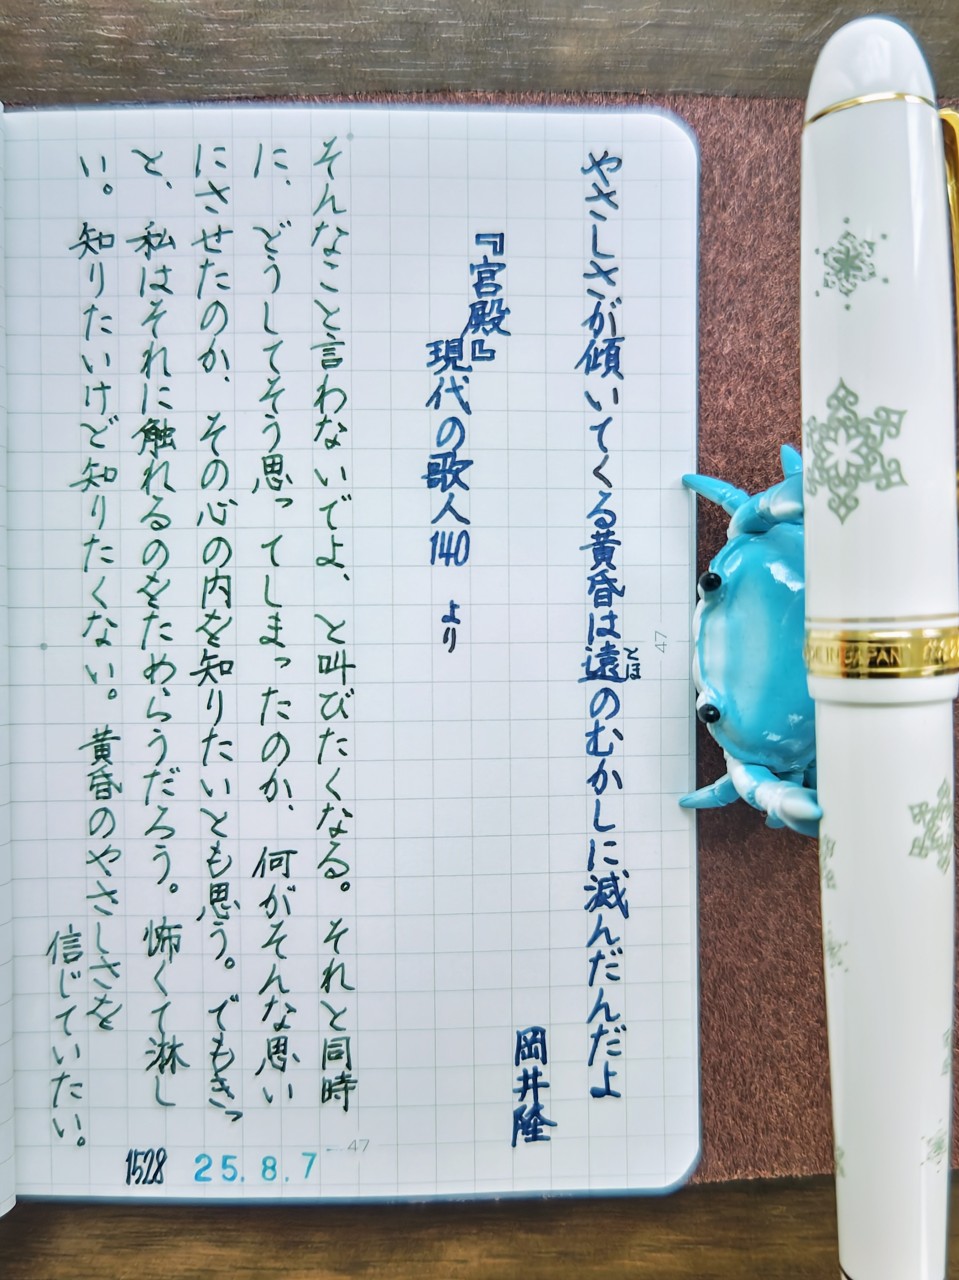 やさしさが傾いてくる黄昏は遠のむかしに滅んだんだよ
とほ
岡井隆
『宮殿』
現代の歌人140 より
そんなこと言わないでよ、と叫びたくなる。それと同時
に、どうしてそう思ってしまったのか、何がそんな思い
にさせたのか、その心の内を知りたいとも思う。でもきっ
と、私はそれに触れるのをためらうだろう。怖くて淋し
い。知りたいけど知りたくない。黄昏のやさしさを
信じていたい。
1528
25.8.7
47
47